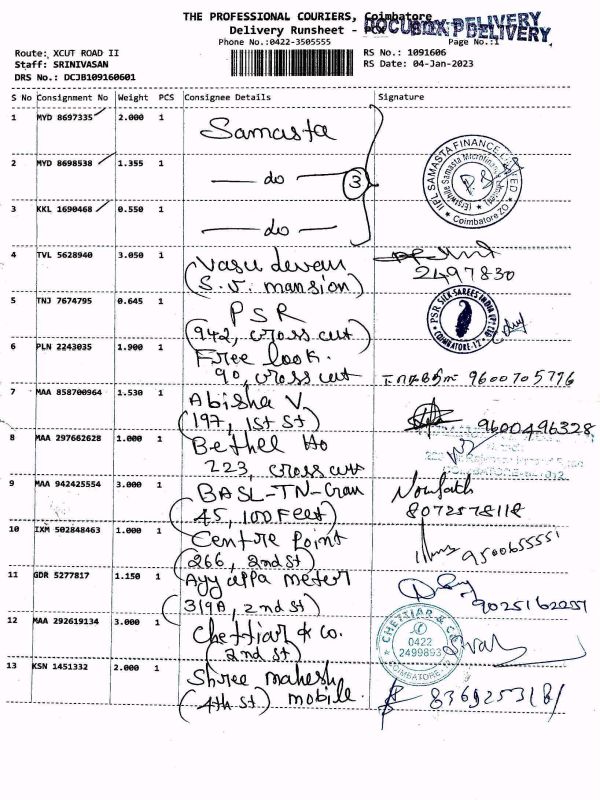 THE PROFESSIONAL COURIERS, Coimbatore
Delivery Runsheet -
DOCUBOX DELIVERY
Phone No.:0422-3505555
Page No.:1
Route: XCUT ROAD II
RS No.: 1091606
Staff: SRINIVASAN
RS Date: 04-Jan-2023
DRS No.: DCJB109160601
S No Consignment No Weight PCS Consignee Details Signature
1 MYD 8697335 2.000 1 Samasta
2 MYD 8698538 1.355 1 do 3
IIFL SAMASTA FINANCE LIMITED
(Erstwhile Samasta Microfinance Limited)
Coimbatore ZO
3 KKL 1690468 0.550 1 do
4 TVL 5628940 3.050 1 Vasudevan
(S.V. mansion) 2497830
5 TNJ 7674795 0.645 1 PSR
(942, cross cut)
PSR SILK SAREES INDIA (P) LTD
COIMBATORE-12
6 PLN 2243035 1.900 1 Free look.
90, cross cut 9600705776
7 MAA 858700964 1.530 1 Abisha V
(197, 1st St) 9600496328
8 MAA 297662628 1.000 1 Bethel Ho
223, cross cut
9 MAA 942425554 3.000 1 BASL-TN-Cran
(45, 100 Feet) 8072578118
10 IXM 502848463 1.000 1 Centre Point
(266, 2nd St) 950065551
11 GDR 5277817 1.150 1 Ayyappa meter
(319A, 2nd St) 9025162251
12 MAA 292619134 3.000 1 Chettiar & Co.
(2nd St)
CHETTIAR & CO
0422
2499893
COIMBATORE-12
13 KSN 1451332 2.000 1 Shree mahesh
(4th St) mobile.